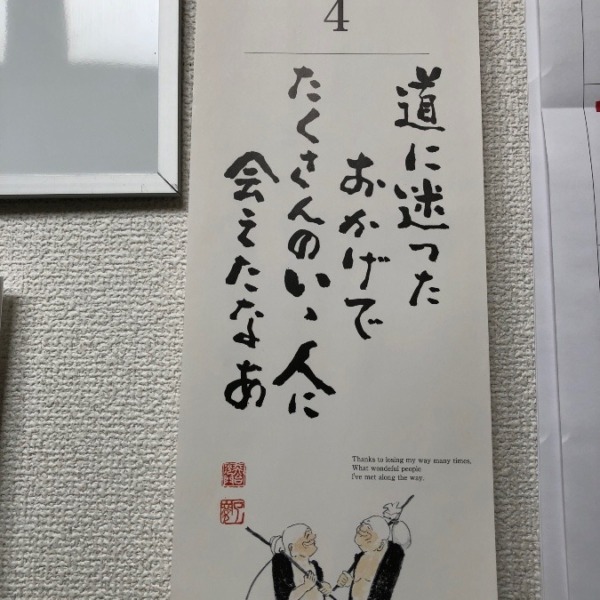 4
道に迷った
おかげで
たくさんのいゝ人に
会えたなあ
Thanks to losing my way many times,
What wonderful people
I've met along the way.